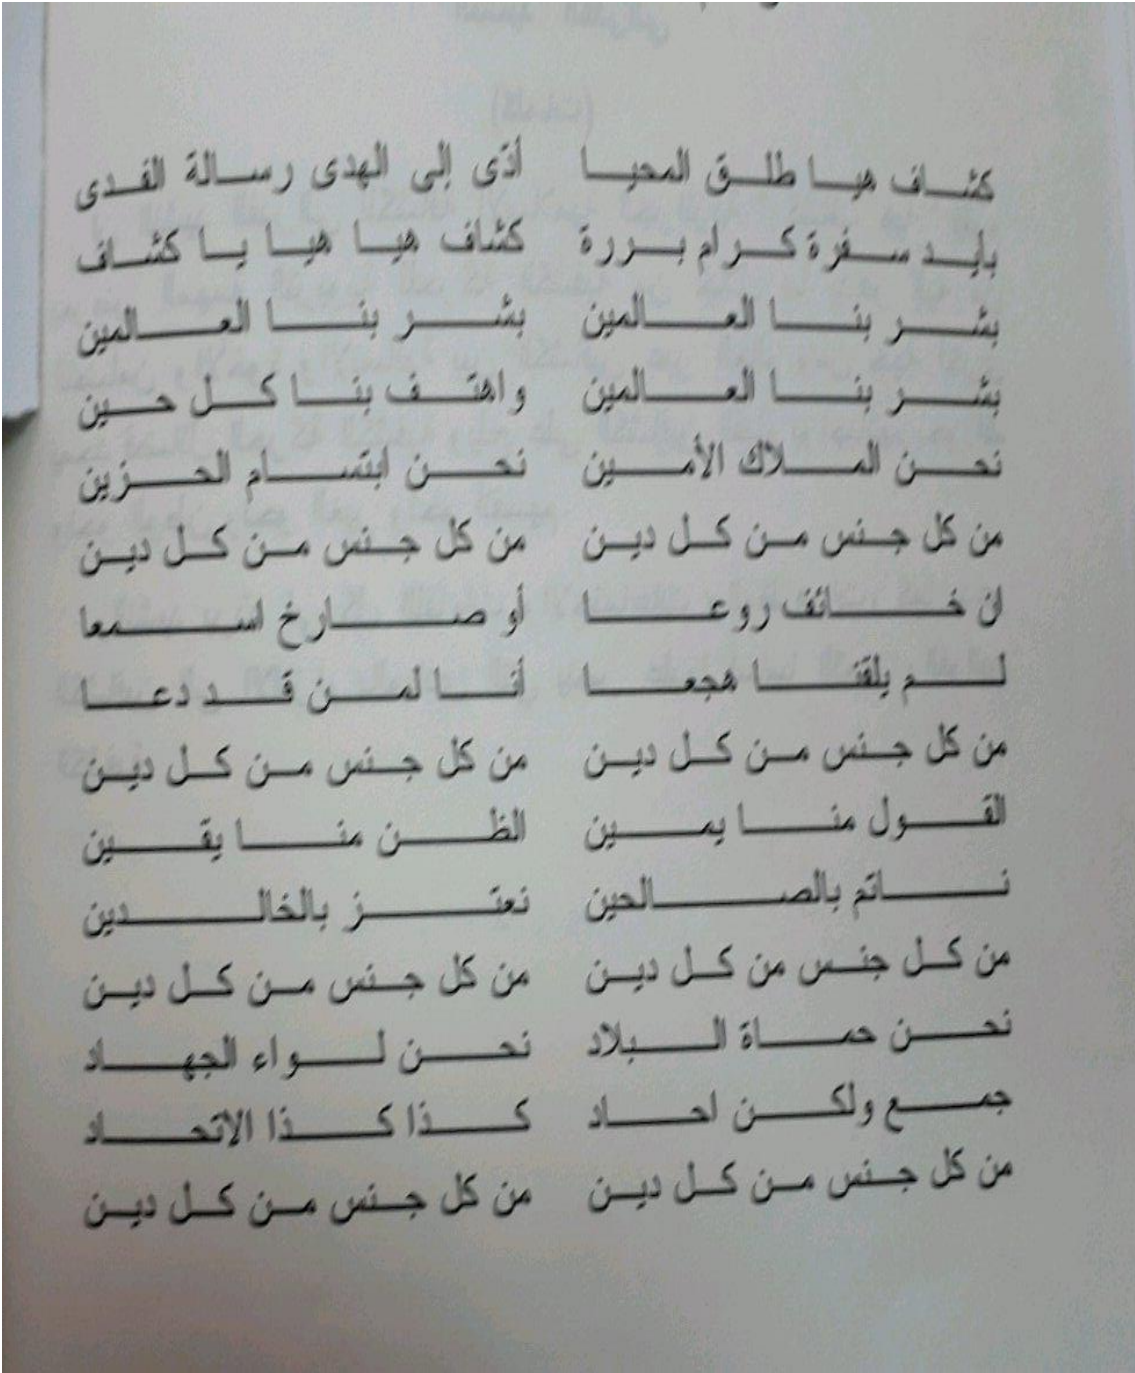 كشاف هيا طلق المحيا أدّى إلى الهدى رسالة الفدى
بأيد سفرة كرام بررة كشاف هيا هيا يا كشاف
بشر بنا العالمين بشر بنا العالمين
بشر بنا العالمين واهتف بنا كل حين
نحن الملاك الأمين نحن ابتسام الحزين
من كل جنس من كل دين من كل جنس من كل دين
ان خائف روعا أو صارخ اسمعا
لم يلقنا هجعا أنا لمن قد دعا
من كل جنس من كل دين من كل جنس من كل دين
القول منا يمين الظن منا يقين
ناتم بالصالحين نعتز بالخالدين
من كل جنس من كل دين من كل جنس من كل دين
نحن حماة البلاد نحن لواء الجهاد
جمع ولكن احاد كذا كذا الاتحاد
من كل جنس من كل دين من كل جنس من كل دين